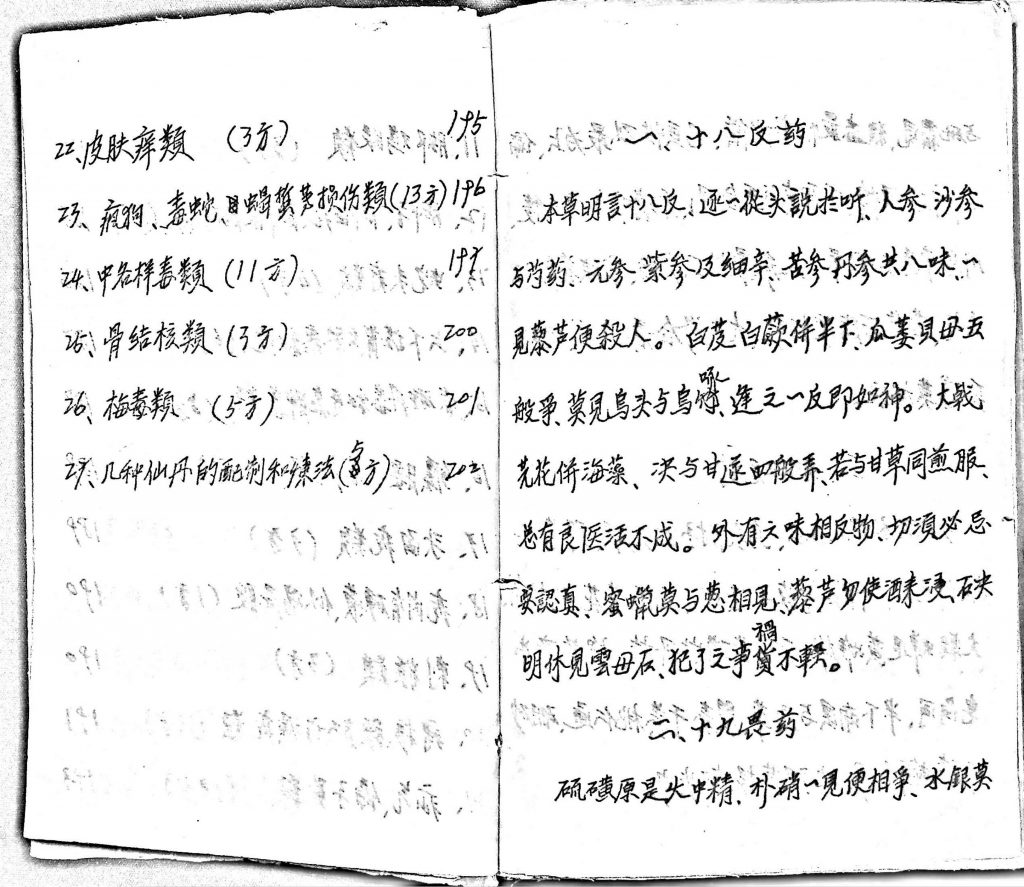 22、皮肤痒類 (3方) 195
23、疯狗、毒蛇、蝎蜇等损伤類(13方) 196
24、中各样毒類 (11方) 197
25、骨结核類 (3方) 200
26、梅毒類 (5方) 201
27、几种仙丹的配制和煉法(方) 202
一、十八反药
本草明言十八反、逐一從头説於听、人参沙参
与芍药、元参紫参及细辛、苦参丹参共八味、一
見藜芦便殺人。白芨白蔹併半下、瓜蒌貝母五
般爭、莫見烏头与烏喙、逢之一反即如神。大戟
芫花併海藻、决与甘遂四般弄、若与甘草同煎服、
总有良医活不成。外有六味相反物、切須必忌
要認真、蜜蠟莫与葱相見、藜芦勿使酒来浸、石决
明休見雲母石、犯了之事禍不輕。
二、十九畏药
硫磺原是火中精、朴硝一見便相爭、水银莫